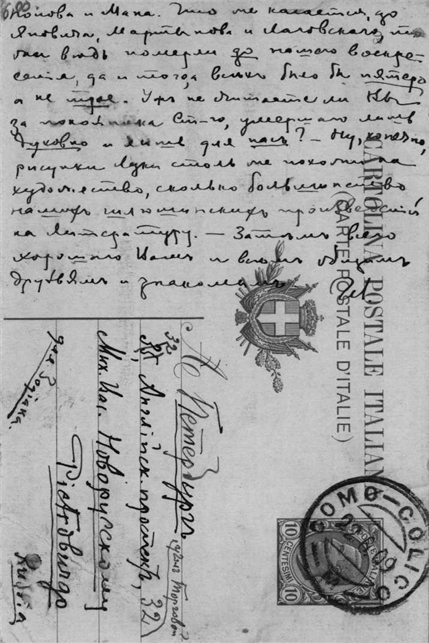 попова и Мана. Что же касается до
Яновича, Мартынова и Лаговского, то
они ведь померли до нашего воскре-
сения, да и тогда всех было бы пятеро,
а не трое. Уж не считаете ли Вы
за покойника Ст-го, умершаго лишь
духовно и лишь для нас? — Ну, конечно,
рисунки Луки столь же похожи на
художество, сколько большинство
наших шлюшинских произведений
на литературу. — Затем всего
хорошаго Вам и всем общим
друзьям и знакомым.
CARTOLINA POSTALE ITALIANA
(CARTE POSTALE D'ITALIE)
Петербург
32 Англійск. проспект, 32
уголъ Торговой
Мих. Вас. Новорусскому
Pietroburgo
Russia
COMO-COLICO
10 CENTESIMI 10